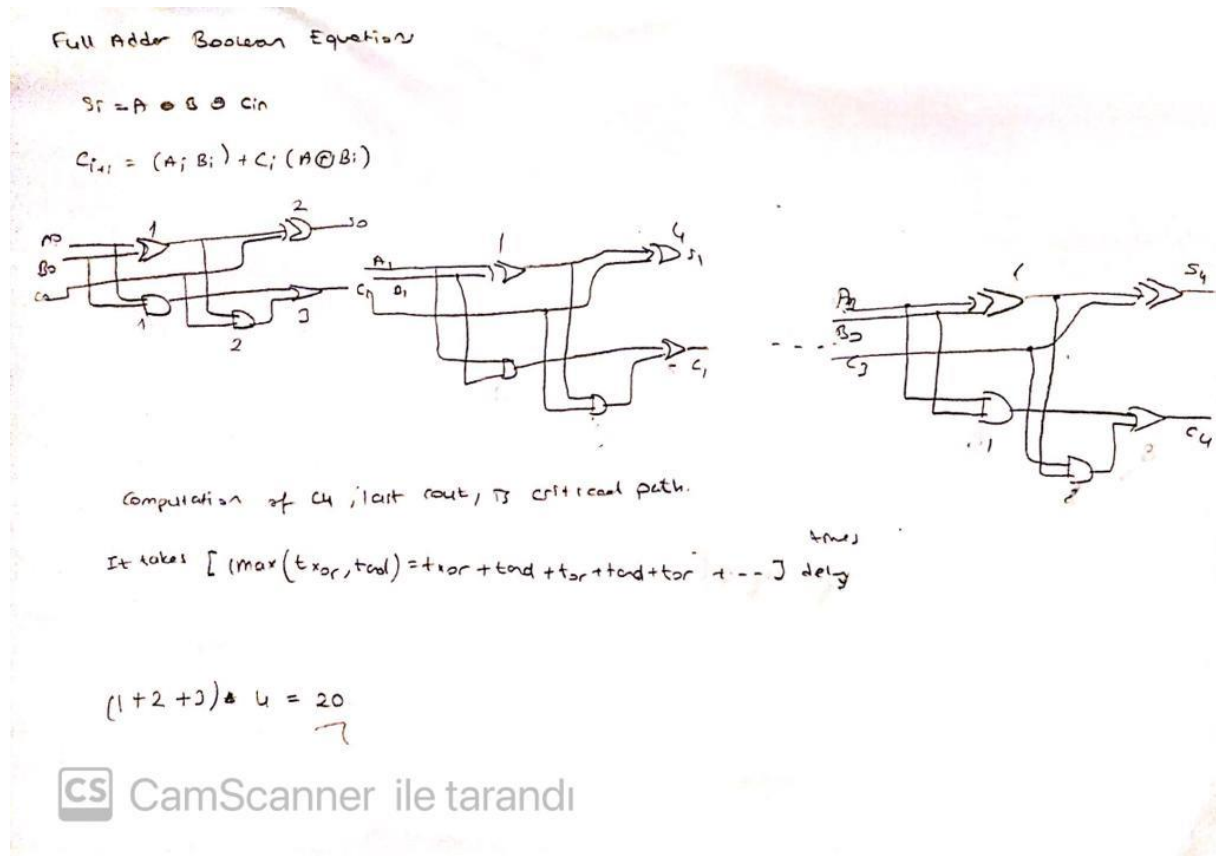 Full Adder Boolean Equation
Si = A ⊕ B ⊕ Cin
Ci+1 = (Ai Bi) + Ci (A⊕Bi)
1 2 S0
A0
B0
C0
1 2 3
A1 B1 C1
1 4 S1
C1
- - - -
A3
B3
C3
1 S4
1 2 C4
Computation of C4, last cout, is critical path.
It takes [ (max(txor, tand) = txor + tand + tor + tand + tor + -- ] times delay
(1+2+3) * 4 = 20
CS CamScanner ile tarandı